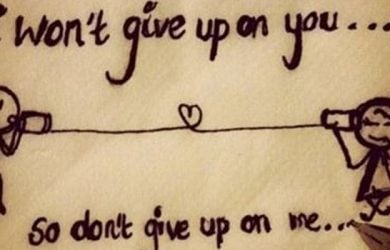 I won't give up on you...
so don't give up on me...